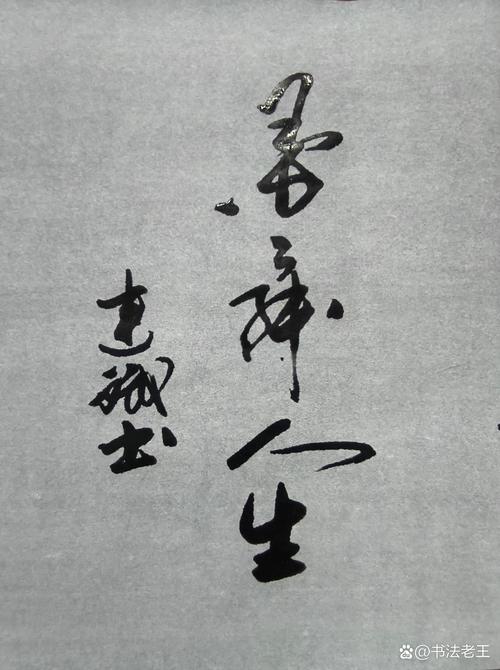 墨舞人生
建斌书
书法老王